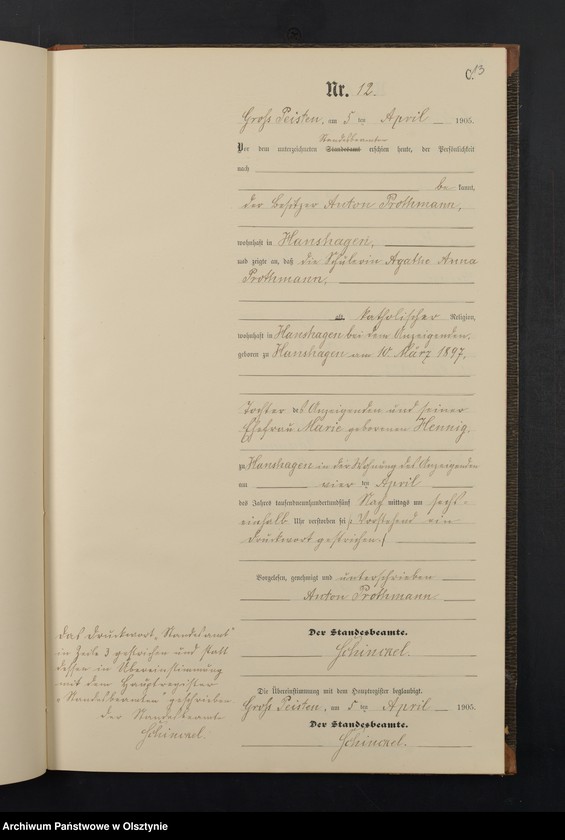 C.
13
Nr. 12.
Groß Peisten, am 5 ten April 1905.
Standesbeamten
Vor dem unterzeichneten Standesamt erschien heute, der Persönlichkeit
nach
be kannt,
der Besitzer Anton Prothmann,
wohnhaft in Hanshagen,
und zeigte an, daß die Schülerin Agathe Anna
Prothmann,
alt, katholischer Religion,
wohnhaft in Hanshagen bei dem Anzeigenden,
geboren zu Hanshagen am 10. März 1897,
Tochter des Anzeigenden und seiner
Ehefrau Marie geborenen Hennig,
zu Hanshagen in der Wohnung des Anzeigenden
am vier ten April
des Jahres tausendneunhundertundfünf Nach mittags um sechs-
einhalb Uhr verstorben sei. Vorstehend ein
Druckwort gestrichen.
Vorgelesen, genehmigt und unterschrieben
Anton Prothmann
Der Standesbeamte.
Schinckel.
Das Druckwort "Standesamt"
in Zeile 3 gestrichen und statt
dessen in Übereinstimmung
mit dem Hauptregister
"Standesbeamten" geschrieben
Der Standesbeamte
Schinckel.
Die Übereinstimmung mit dem Hauptregister beglaubigt.
Groß Peisten, am 5 ten April 1905.
Der Standesbeamte.
Schinckel.
Archiwum Państwowe w Olsztynie